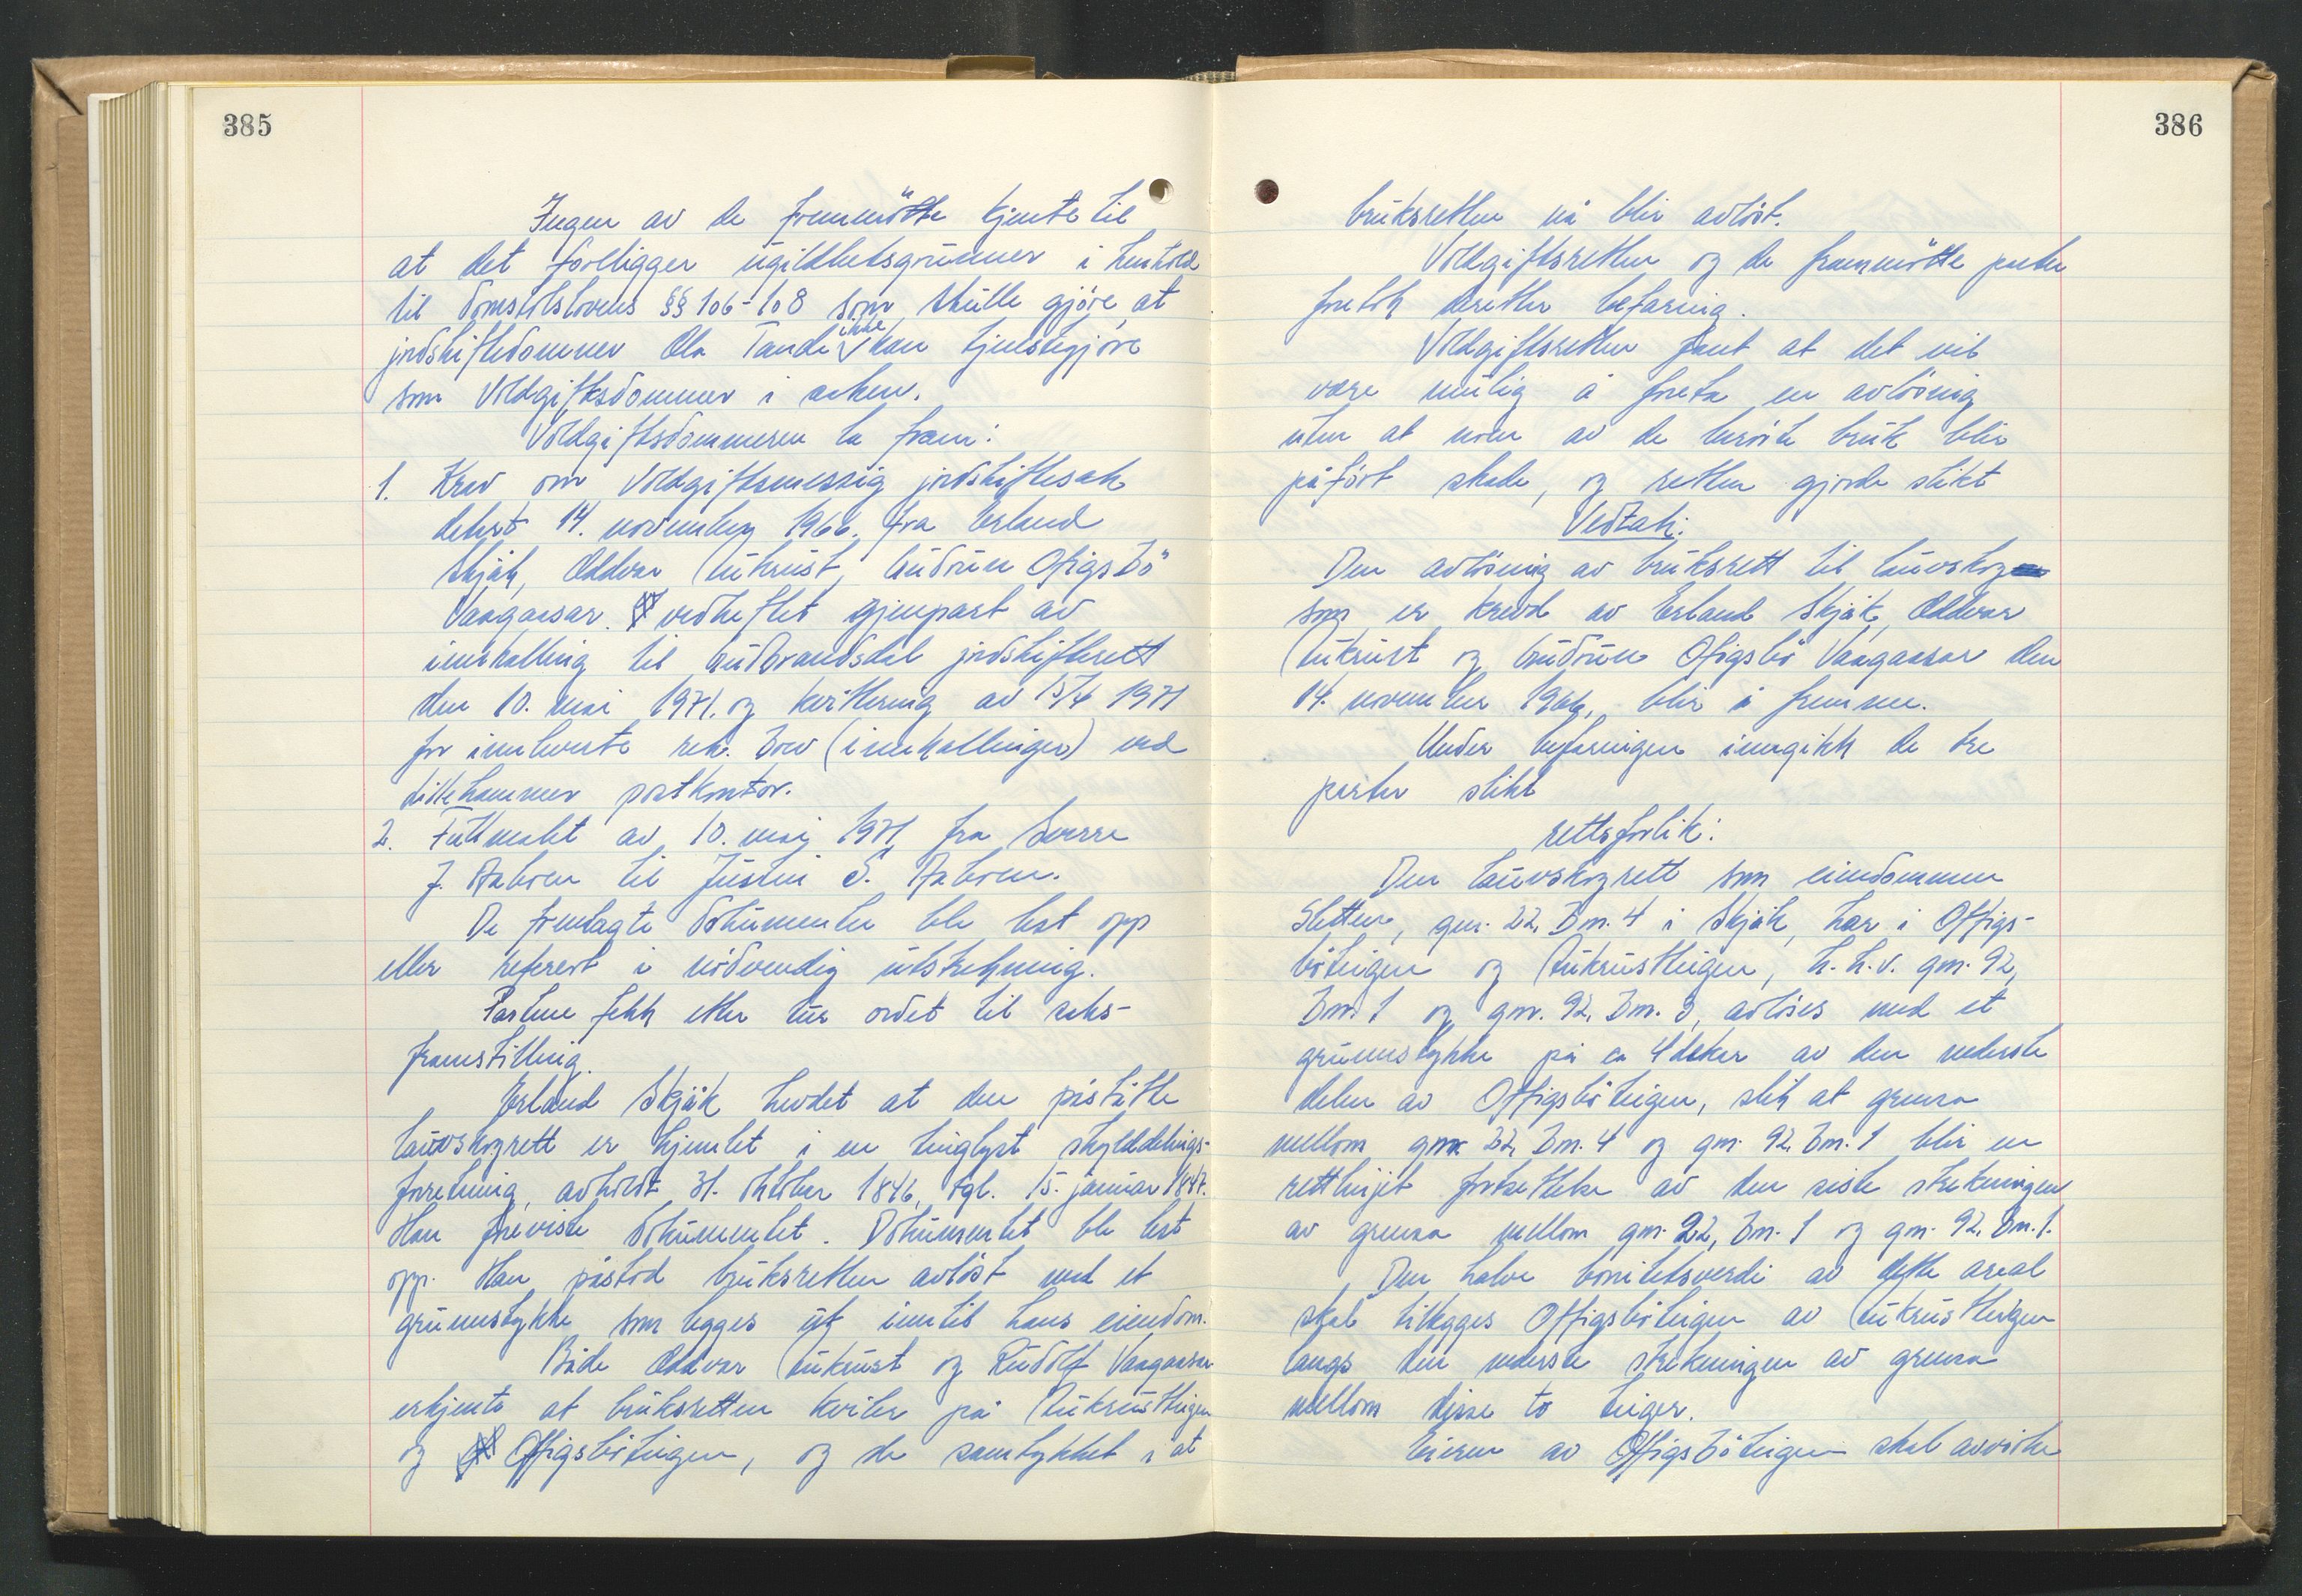 385
Ingen av de fremmötte kjente til
at det foreligger ugildhetsgrunner i henhold
til domstolslovens §§ 106-108 som skulle gjöre at
jordskiftedommer Ola Tande ikke kan tjenestegjöre
som voldgiftsdommer i saken.
Voldgiftsdommeren la fram:
1. Krav om voldgiftsmessig jordskiftesak
datert 14. november 1966 fra Erland
Skjåk, Oddvar Lukrust, Gudrun Ofigsbö
Vaagaasar vedheftet gjenpart av
innkalling til Gudbrandsdal jordskifterett
den 10. mai 1971 og kvittering av 15/4 1971
for innleverte rek. brev (innkallinger) ved
Lillehammer postkontor.
2. Fullmakt av 10. mai 1971 fra Sverre
J. Aaboen til Justin S. Aaboen.
De fremlagte dokumenter ble lest opp
eller referert i nödvendig utstrekning.
Partene fekk etter tur ordet til saks-
framstilling.
Erland Skjåk hevdet at den påståtte
lauvskogrett er hjemlet i en tinglyst skylddelings-
forretning, avholdt 31. oktober 1846, tgl. 15. januar 1847.
Han foreviste dokumentet. Dokumentet ble lest
opp. Han påstod bruksretten avlöst med et
grunnstykke som legges ut inntil hans eiendom.
Både Oddvar Lukrust og Rudolf Vaagaasar
erkjente at bruksretten kviler på Lukrustteigen
og Offigsböteigen, og de samtykket i at
386
bruksretten nå blir avlöst.
Voldgiftsretten og de frammötte parter
foretok deretter befaring.
Voldgiftsretten fant at det vil
være mulig å foreta en avlösning
uten at noen av de berörte bruk blir
påfört skade, og retten gjorde slikt
Vedtak:
Den avlösning av bruksrett til lauvskog
som er krevd av Erland Skjåk, Oddvar
Lukrust og Gudrun Ofigsbö Vaagaasar den
14. november 1966, blir å fremme.
Under befaringen inngikk de tre
parter slikt
rettsforlik:
Den lauvskogrett som eiendommen
Sletten, gnr. 22, bnr. 4 i Skjåk, har i Offigs-
böteigen og Lukrustteigen, h.h.v. gnr. 92,
bnr. 1 og gnr. 92, bnr. 3, avlöses med et
grunnstykke på ca 4 dekar av den nederste
delen av Offigsböteigen, slik at grensa
mellom gnr. 22, bnr. 4 og gnr. 92, bnr. 1 blir en
rettlinjet fortsettelse av den siste strekningen
av grensa mellom gnr. 22, bnr. 1 og gnr. 92, bnr. 1.
Den halve bonitetsverdi av dette areal
skal tillegges Offigsböteigen av Lukrustteigen
langs den nederste strekningen av grensa
mellom disse to teiger.
Eieren av Offigsböteigen skal avvirke